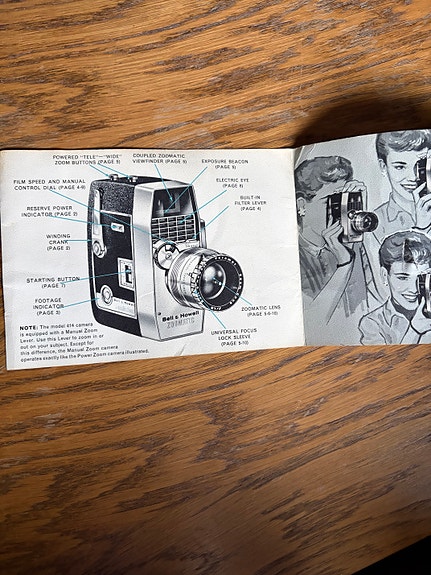 POWERED "TELE"—"WIDE"
ZOOM BUTTONS (PAGE 5)
COUPLED ZOOMATIC
VIEWFINDER (PAGE 5)
EXPOSURE BEACON
(PAGE 5)
FILM SPEED AND MANUAL
CONTROL DIAL (PAGE 4-9)
ELECTRIC EYE
(PAGE 8)
BUILT-IN
FILTER LEVER
(PAGE 4)
RESERVE POWER
INDICATOR (PAGE 2)
WINDING
CRANK
(PAGE 2)
STARTING BUTTON
(PAGE 7)
FOOTAGE
INDICATOR
(PAGE 3)
Bell & Howell
ZOOMATIC
ZOOMATIC LENS
(PAGE 5-6-10)
UNIVERSAL FOCUS
LOCK SLEEVE
(PAGE 5-10)
NOTE: The model 414 camera
is equipped with a Manual Zoom
Lever. Use this Lever to zoom in or
out on your subject. Except for
this difference, the Manual Zoom camera
operates exactly like the Power Zoom camera illustrated.